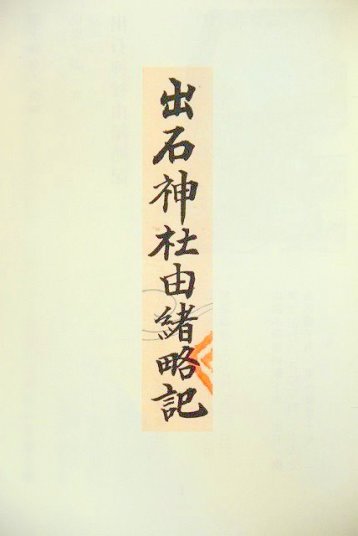 出石神社由緒略記